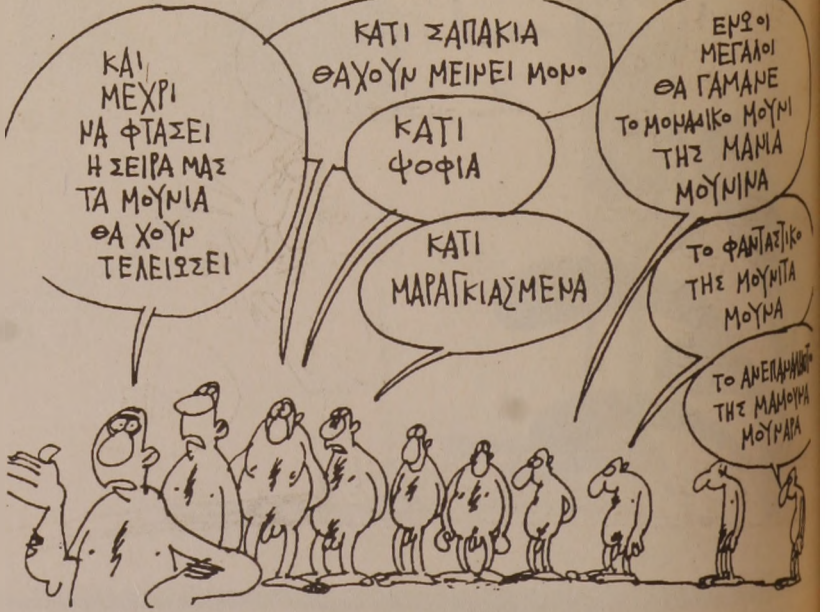 ΚΑΙ
ΜΕΧΡΙ
ΝΑ ΦΤΑΣΕΙ
Η ΣΕΙΡΑ ΜΑΣ
ΤΑ ΜΟΥΝΙΑ
ΘΑ ΧΟΥΝ
ΤΕΛΕΙΩΣΕΙ
ΚΑΤΙ ΣΑΠΑΚΙΑ
ΘΑΧΟΥΝ ΜΕΙΝΕΙ ΜΟΝΟ
ΚΑΤΙ
ΨΟΦΙΑ
ΚΑΤΙ
ΜΑΡΑΓΚΙΑΣΜΕΝΑ
ΕΝΩ ΟΙ
ΜΕΓΑΛΟΙ
ΘΑ ΓΑΜΑΝΕ
ΤΟ ΜΟΝΑΔΙΚΟ ΜΟΥΝΙ
ΤΗΣ ΜΑΝΙΑ
ΜΟΥΝΙΝΑ
ΤΟ ΦΑΝΤΑΣΤΙΚΟ
ΤΗΣ ΜΟΥΝΙΤΑ
ΜΟΥΝΑ
ΤΟ
ΤΗΣ ΜΑΜΟΥΝΑ
ΜΟΥΝΑΡΑ